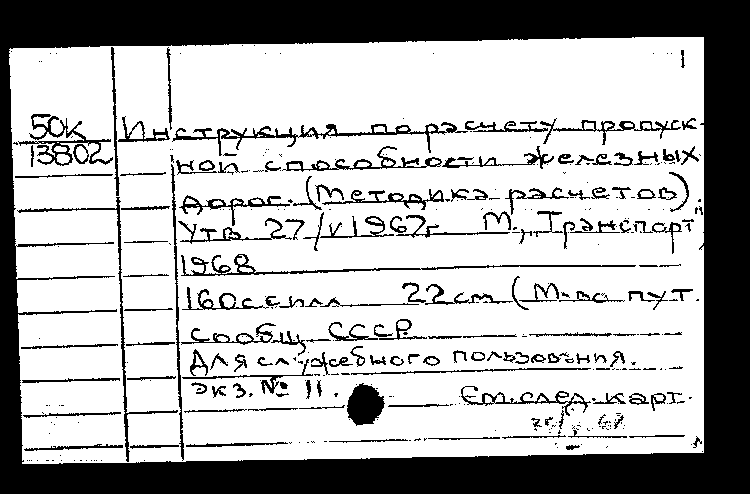 50К
13802
Инструкция по расчету пропуск-
ной способности железных
дорог. (Методика расчетов).
Утв. 27/V 1967г. М., „Транспорт",
1968
160с. с илл. 22 см (М-во пут.
сообщ. СССР
Для служебного пользования.
Экз. № 11.
См. след. карт.